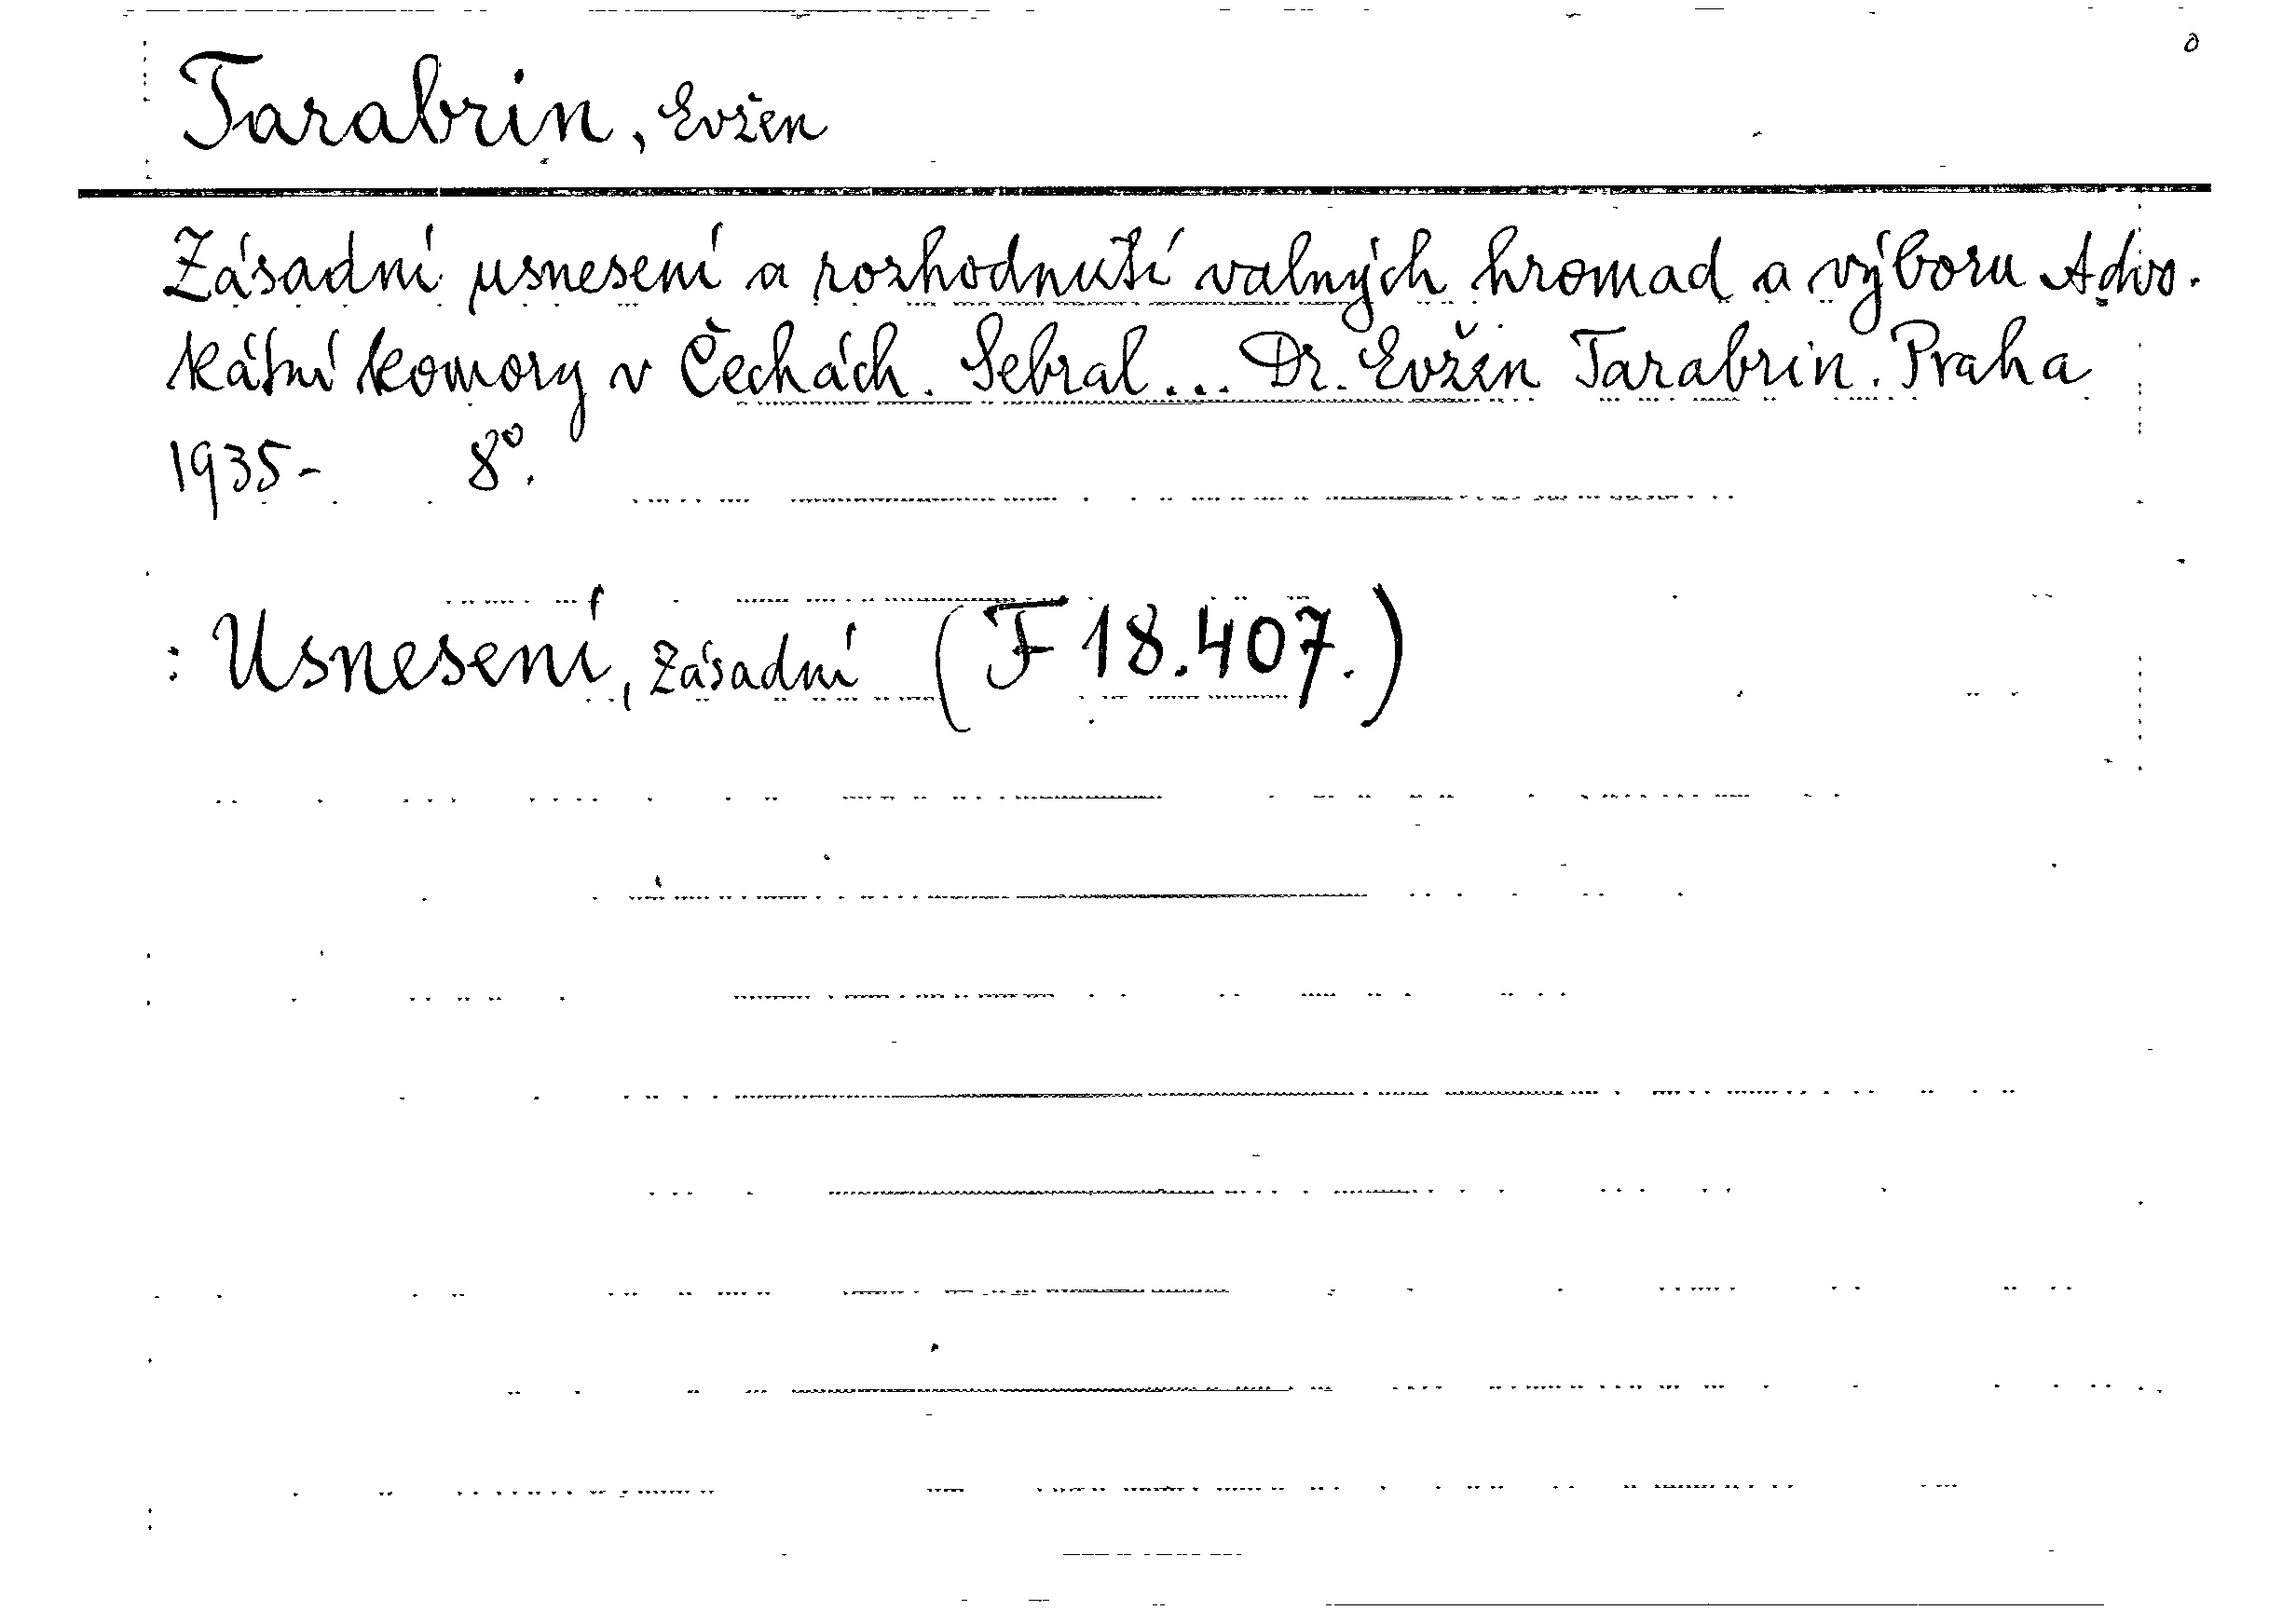 Tarabrin, Evžen
Zásadní usnesení a rozhodnutí valných hromad a výboru Advo-
kátní komory v Čechách. Sebral... Dr. Evžen Tarabrin. Praha
1935- 8°.
: Usnesení, zásadní (F 18.407.)